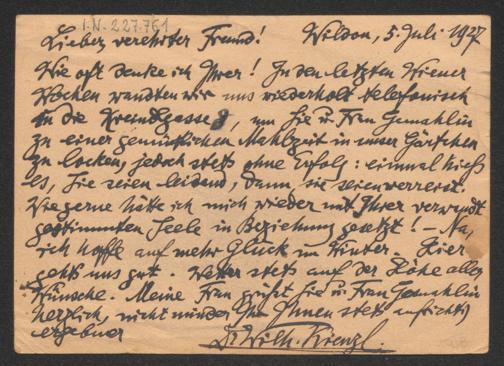 I.N. 227.761
Lieber verehrter Freund! Wildon, 5. Juli 1927
Wie oft denke ich Ihrer! In den letzten Wiener
Wochen wandten wir uns wiederholt telefonisch
in die Kreindlgasse 9, um Sie u. Frau Gemahlin
zu einer gemütlichen Mahlzeit in unser Gärtchen
zu locken, jedoch stets ohne Erfolg: einmal hieß
es, Sie seien leidend, dann, sie seien verreist.
Wie gerne hätte ich mich wieder mit Ihrer verwandt
gestimmten Seele in Beziehung gesetzt! – Na,
ich hoffe auf mehr Glück im Winter. Hier
geht's uns gut. Wetter stets auf der Höhe aller
Wünsche. Meine Frau grüßt Sie u. Frau Gemahlin
herzlich, nicht minder Ihr Ihnen stets aufrichtig
ergebner
Dr Wilh. Kienzl.